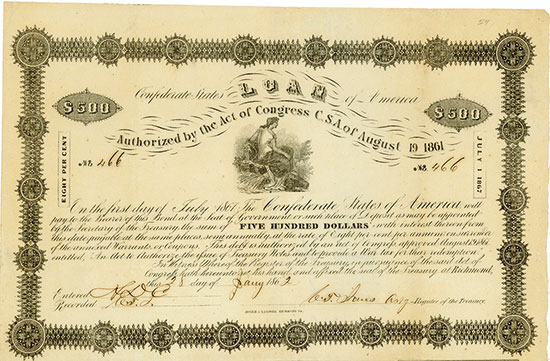 LOAN
Confederate States of America
$500 $500
Authorized by the Act of Congress C.S.A. of August 19 1861
EIGHT PER CENT
JULY 1 1867
No. 466 No. 466
On the first day of July 1867 The Confederate States of America will
pay to the Bearer of this Bond at the Seat of Government or such place of Deposit as may be appointed
by the Secretary of the Treasury, the sum of FIVE HUNDRED DOLLARS with interest thereon from
this date payable at the same place semi annually, at the rate of Eight per cent per annum on surrender
of the annexed Warrants, or Coupons. This debt is authorized by an Act of Congress approved August 19 1861
entitled, An Act to Authorize the Issue of Treasury Notes and to provide a War tax for their redemption.
In Witness Whereof the Register of the Treasury in pursuance of the said Act of
Congress, hath hereunto set his hand, and affixed the seal of the Treasury at Richmond,
this day of Jany 1862
Entered
Recorded
C. T. Jones Register of the Treasury.